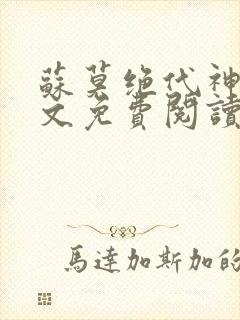 蘇莫絕代神
文免費閱讀
馬達加斯加的